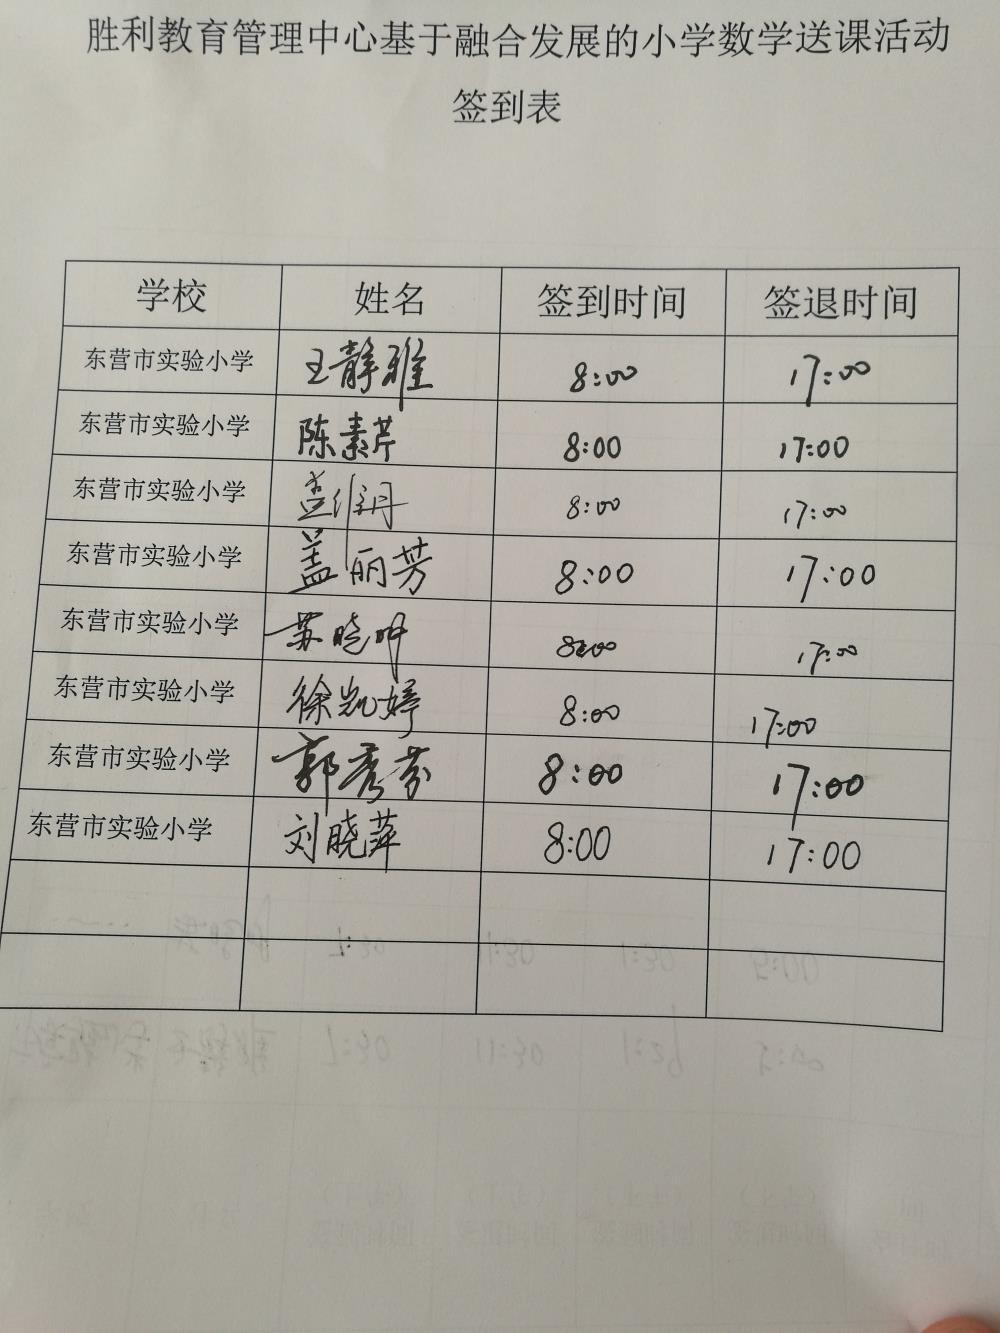 胜利教育管理中心基于融合发展的小学数学送课活动
签到表
学校 姓名 签到时间 签退时间
东营市实验小学 王静雅 8:00 17:00
东营市实验小学 陈素芹 8:00 17:00
东营市实验小学 盖 8:00 17:00
东营市实验小学 盖丽芳 8:00 17:00
东营市实验小学 苏晓 8:00 17:00
东营市实验小学 徐凯婷 8:00 17:00
东营市实验小学 郭秀芬 8:00 17:00
东营市实验小学 刘晓萍 8:00 17:00